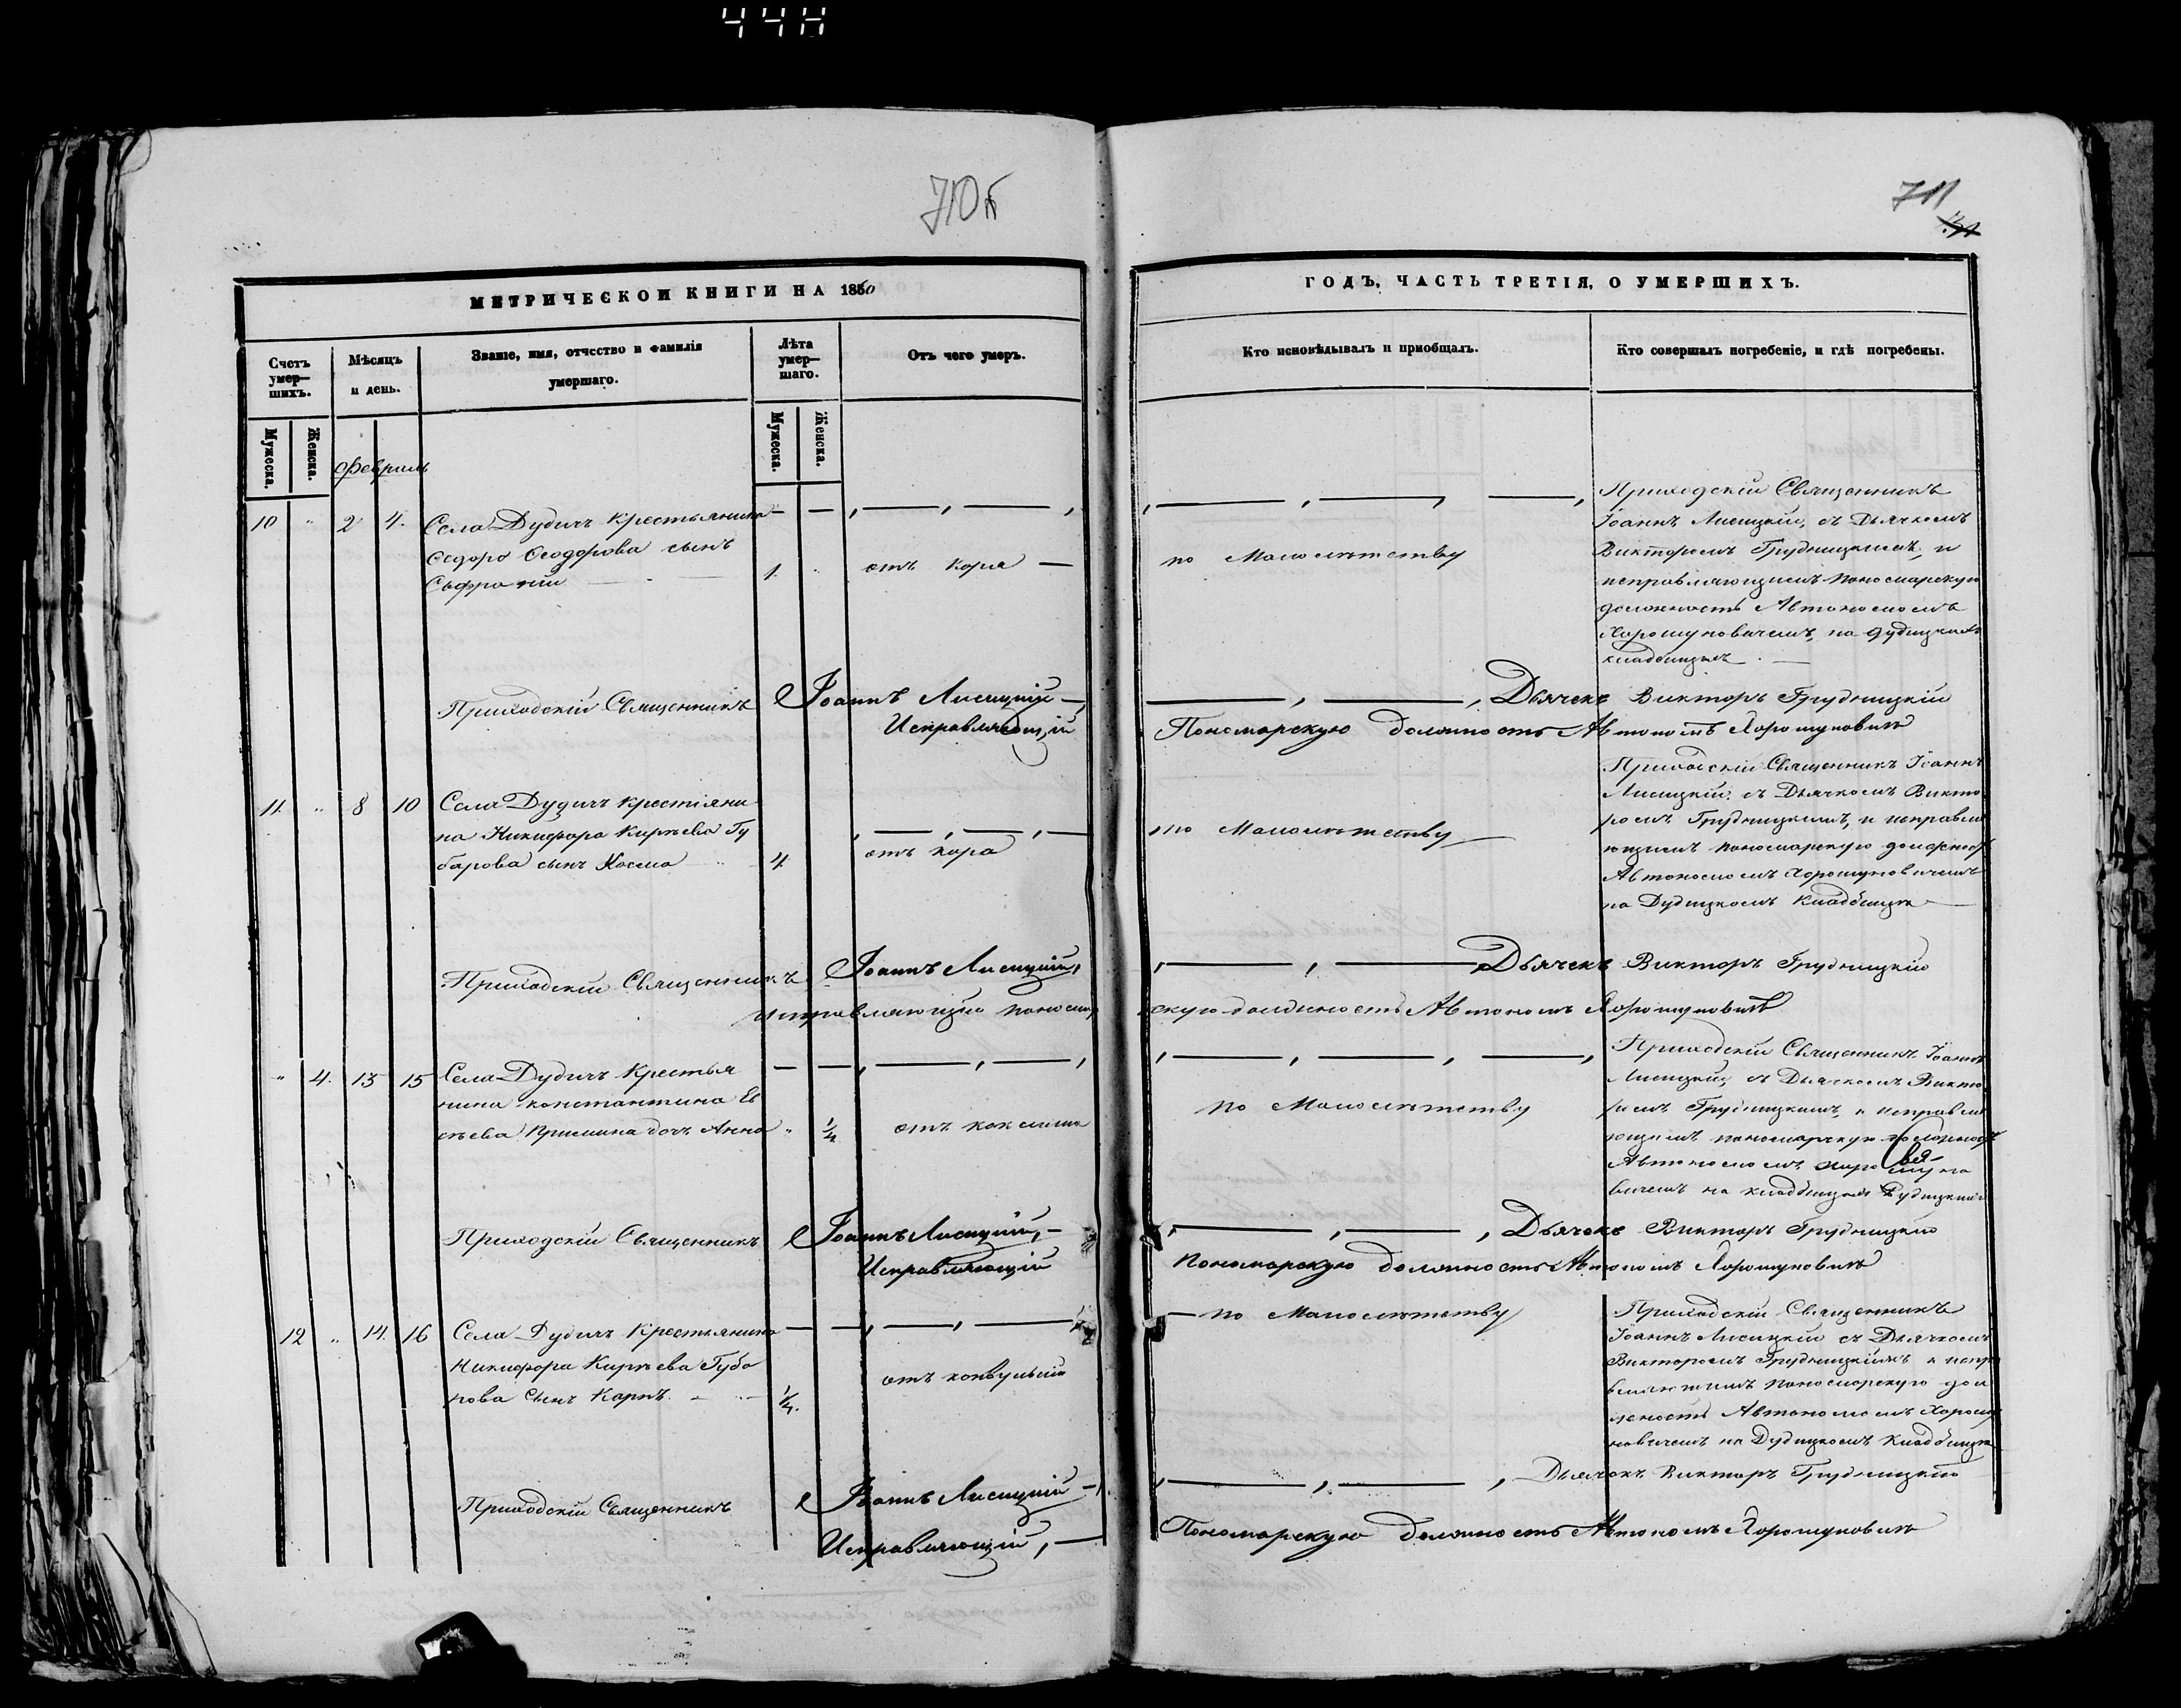 44H
710б
711
МЕТРИЧЕСКОЙ КНИГИ НА 1860
ГОДЪ, ЧАСТЬ ТРЕТІЯ, О УМЕРШИХЪ.
Счетъ умер—шихъ.
Мѣсяцъ и день.
Званіе, имя, отчество и фамилія умершаго.
Лѣта умер—шаго.
Отъ чего умеръ.
Кто исповѣдывалъ и пріобщалъ.
Кто совершалъ погребеніе, и гдѣ погребены.
Мужеска.
Женска.
Мужеска.
Женска.
Февраль
10 " 2 4. Села Дудичъ крестьянина
Ѳедора Ѳеодорова сынъ
Софроній
1. "
отъ коря
по Малолѣтству
Приходскій Священникъ
Іоаннъ Лисицкій, съ Дьячкомъ
Викторомъ Грудницкимъ, и
исправляющимъ пономарскую
должность Автономомъ
Хорошуновичемъ, на Дудицкомъ
кладбищѣ.
Приходскій Священникъ Іоаннъ Лисицкій
Дьячекъ Викторъ Грудницкій
Исправляющій
Пономарскую должность Автономъ Хорошуновичъ
11. " 8 10 Села Дудичъ крестіяни
на Никифора Кирѣева Гу
барова сынъ Косма
4
отъ кора
по Малолѣтству
Приходскій Священникъ Іоаннъ
Лисицкій, съ Дьячкомъ Викто
ромъ Грудницкимъ, и исправля
ющимъ пономарскую должност
Автономомъ Хорошуновичемъ
на Дудицкомъ Кладбищѣ
Приходскій Священникъ Іоаннъ Лисицкій,
Дьячекъ Викторъ Грудницкій
исправляющій пономар
скую должность Автономъ Хорошуновичъ
" 4. 13 15 Села Дудичъ Крестья
нина константина Ев
сѣева дочь Анна
" 1/4
отъ коклюша
по Малолѣтству
Приходскій Священникъ Іоаннъ
Лисицкій, съ Дьячкомъ Викто
ромъ Грудницкимъ, и исправля
ющимъ пономарскую должност
Автономомъ Хорошуно
вичемъ на кладбищѣ Дудицкомъ
Приходскій Священникъ Іоаннъ Лисицкій,
Дьячекъ Викторъ Грудницкій
Исправляющій
Пономарскую должность Автономъ Хорошуновичъ
12 " 14. 16 Села Дудичъ Крестьянина
Никифора Кирѣева Губа
рова Сынъ Карпъ.
1/4.
отъ конвульсіи
по Малолѣтству
Приходскій Священникъ
Іоаннъ Лисицкій съ Дьячкомъ
Викторомъ Грудницкимъ и испра
вляющимъ пономарскую дол
жность Автономомъ Хорошу
новичемъ на Дудицкомъ Кладбищѣ
Приходскій Священникъ Іоаннъ Лисицкій
Дьячекъ Викторъ Грудницкій
Исправляющій,
Пономарскую должность Автономъ Хорошуновичъ